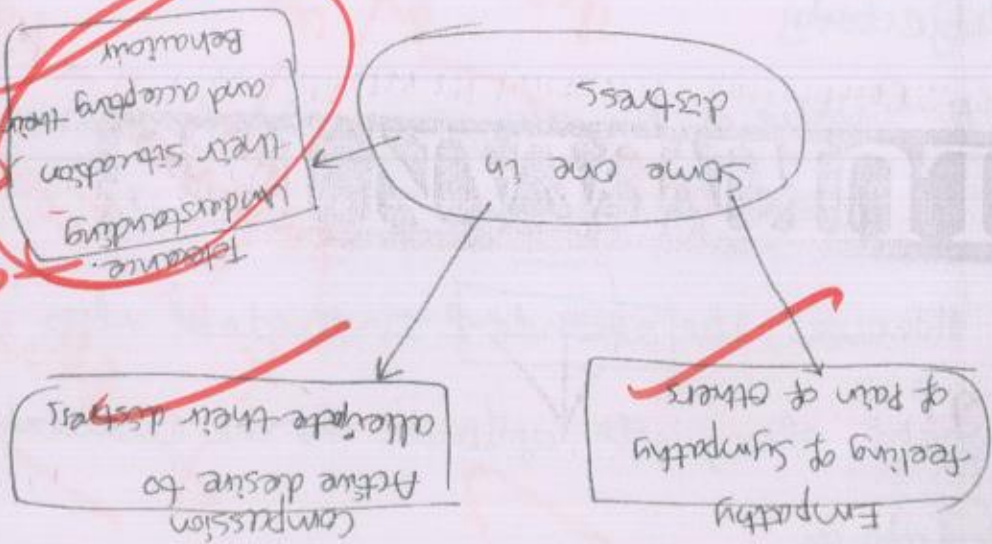 Empathy
feeling of sympathy
of Pain of others
Compassion
Active desire to
alleviate their distress
Some one in
distress
Tolerance.
Understanding
their situation
and accepting their
Behaviour